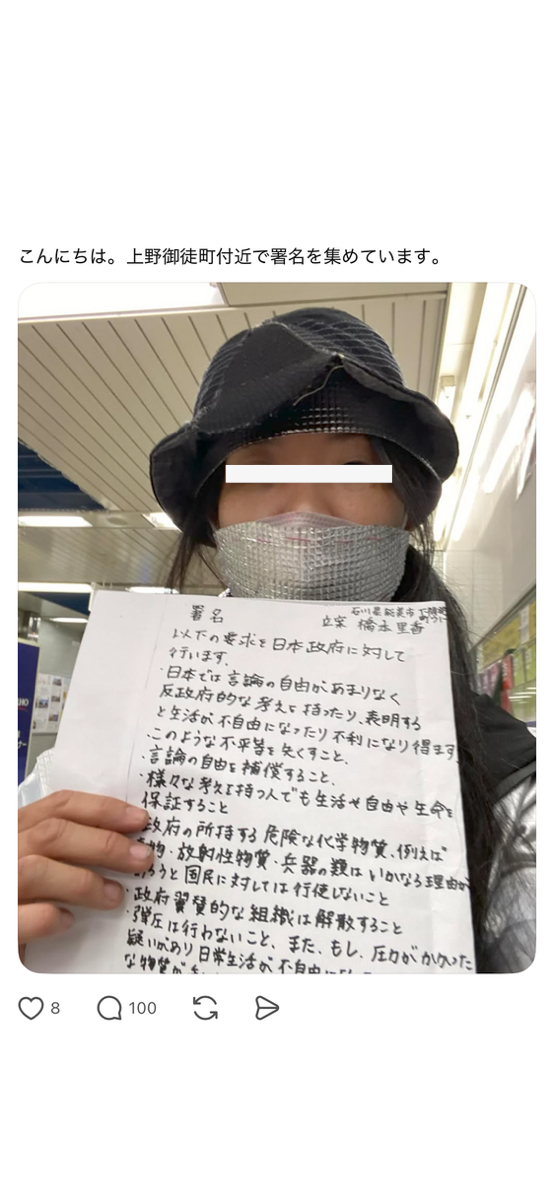 こんにちは。上野御徒町付近で署名を集めています。
署名
石川県能美市
立案
以下の要求を日本政府に対して
行います。
・日本では言論の自由があまりなく
反政府的な考えを持ったり、表明する
と生活が不自由になったり不利になり得ます。
・このような不平等を失くすこと、
・言論の自由を補償すること、
・様々な考えを持つ人でも生活や自由や生命を
保証すること
政府の所持する危険な化学物質、例えば
物・放射性物質・兵器の類はいかなる理由が
ろうと国民に対しては行使しないこと
・政府翼賛的な組織は解散すること
・弾圧は行わないこと、また、もし、圧力がかかった
疑いがあり日常生活が不自由に
な物質が
8
100